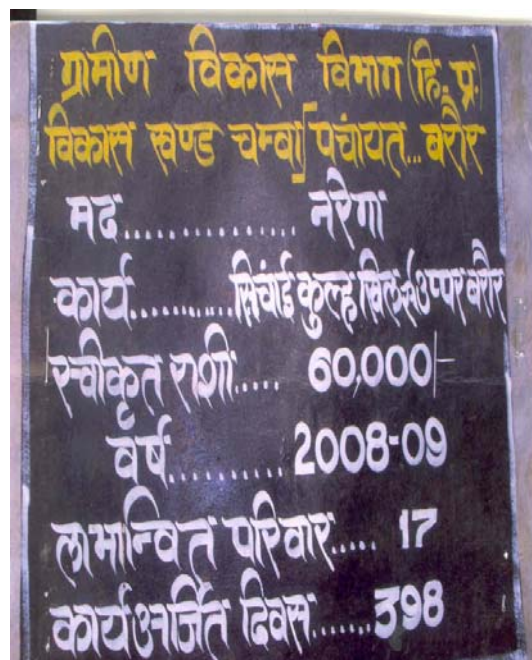 ग्रामीण विकास विभाग (हि.प्र.)
विकास खण्ड चम्बा/पंचायत... बरौर
मद............... नरेगा
कार्य.......... सिंचाई कुल्ह खिलई उप्पर बरौर
स्वीकृत राशी..... 60,000/-
वर्ष.......... 2008-09
लाभान्वित परिवार..... 17
कार्यअर्जित दिवस......398